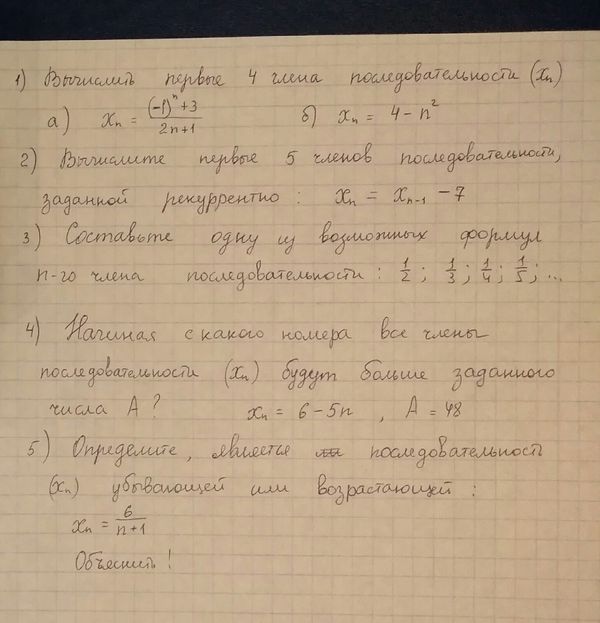 1) Вычислить первые 4 члена последовательности (xₙ)
а) xₙ = ((-1)ⁿ+3)/(2n+1) б) xₙ = 4 - n²
2) Вычислите первые 5 членов последовательности,
заданной рекуррентно : xₙ = xₙ₋₁ - 7
3) Составьте одну из возможных формул
n-го члена последовательности : 1/2 ; 1/3 ; 1/4 ; 1/5 ; ...
4) Начиная с какого номера все члены
последовательности (xₙ) будут больше заданного
числа А ? xₙ = 6 - 5n , A = 48
5) Определите, является последовательность
(xₙ) убывающей или возрастающей :
xₙ = 6/(n+1)
Объяснить !